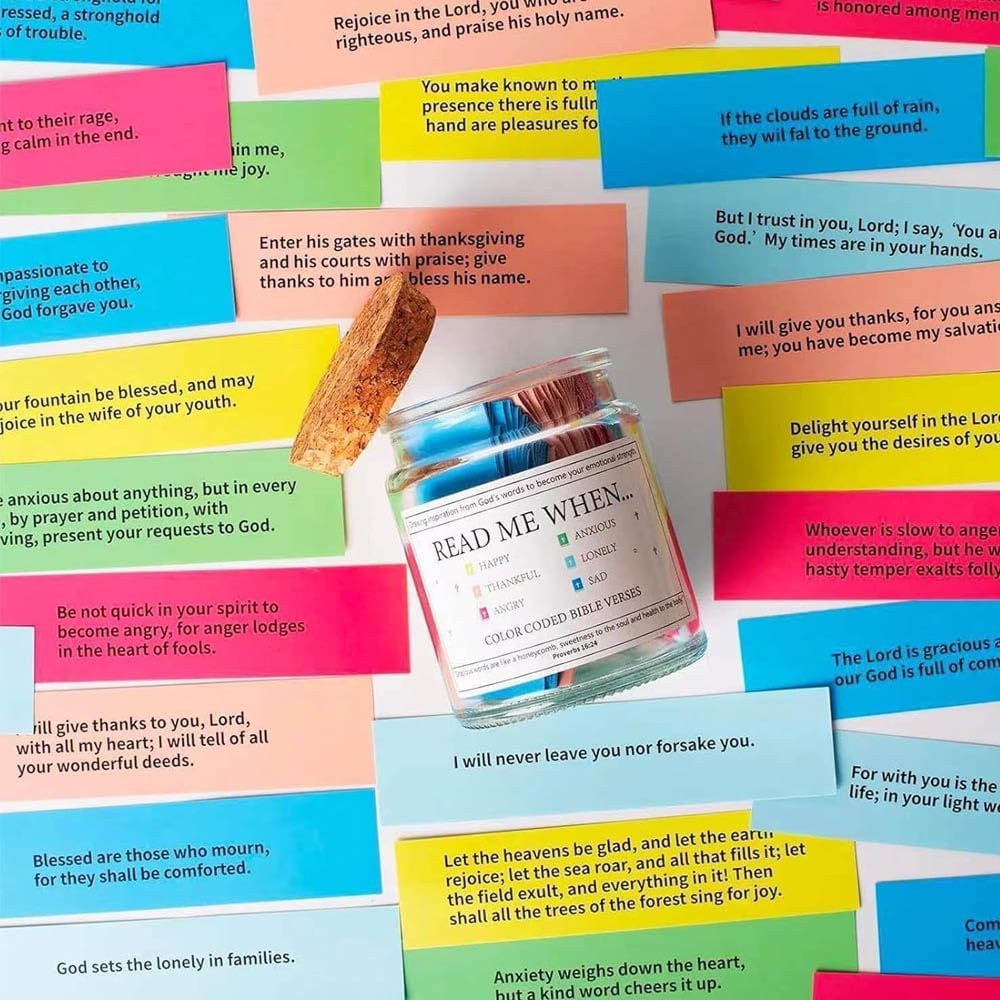 ressed, a stronghold
of trouble.
Rejoice in the Lord, you who are
righteous, and praise his holy name.
is honored among men
nt to their rage,
g calm in the end.
in me,
joy.
You make known to
presence there is
hand are pleasures
If the clouds are full of rain,
they wil fal to the ground.
But I trust in you, Lord; I say, ‘You a
God.’ My times are in your hands.
mpassionate to
rgiving each other,
God forgave you.
Enter his gates with thanksgiving
and his courts with praise; give
thanks to him bless his name.
I will give you thanks, for you ans
me; you have become my salvati
our fountain be blessed, and may
joice in the wife of your youth.
Delight yourself in the Lor
give you the desires of you
e anxious about anything, but in every
, by prayer and petition, with
ving, present your requests to God.
Whoever is slow to ange
understanding, but he w
hasty temper exalts folly
Drawing inspiration from God's words to become your emotional strength
READ ME WHEN...
HAPPY
THANKFUL
ANGRY
ANXIOUS
LONELY
SAD
COLOR CODED BIBLE VERSES
Gracious words are like a honeycomb, sweetness to the soul and health to the body
Proverbs 16:24
Be not quick in your spirit to
become angry, for anger lodges
in the heart of fools.
The Lord is gracious a
our God is full of com
will give thanks to you, Lord,
with all my heart; I will tell of all
your wonderful deeds.
I will never leave you nor forsake you.
For with you is the
life; in your light we
Blessed are those who mourn,
for they shall be comforted.
Let the heavens be glad, and let the earth
rejoice; let the sea roar, and all that fills it; let
the field exult, and everything in it! Then
shall all the trees of the forest sing for joy.
God sets the lonely in families.
Anxiety weighs down the heart,
but a kind word cheers it up.
Com
heav